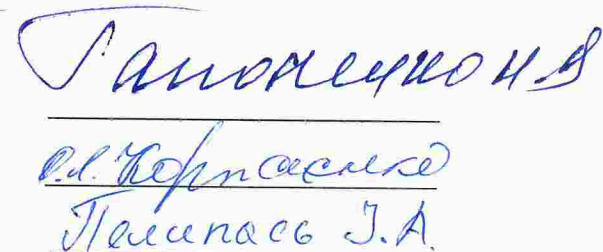 Гапоненко Н.В
О.Л. Корпасенко
Пелипась І.А.